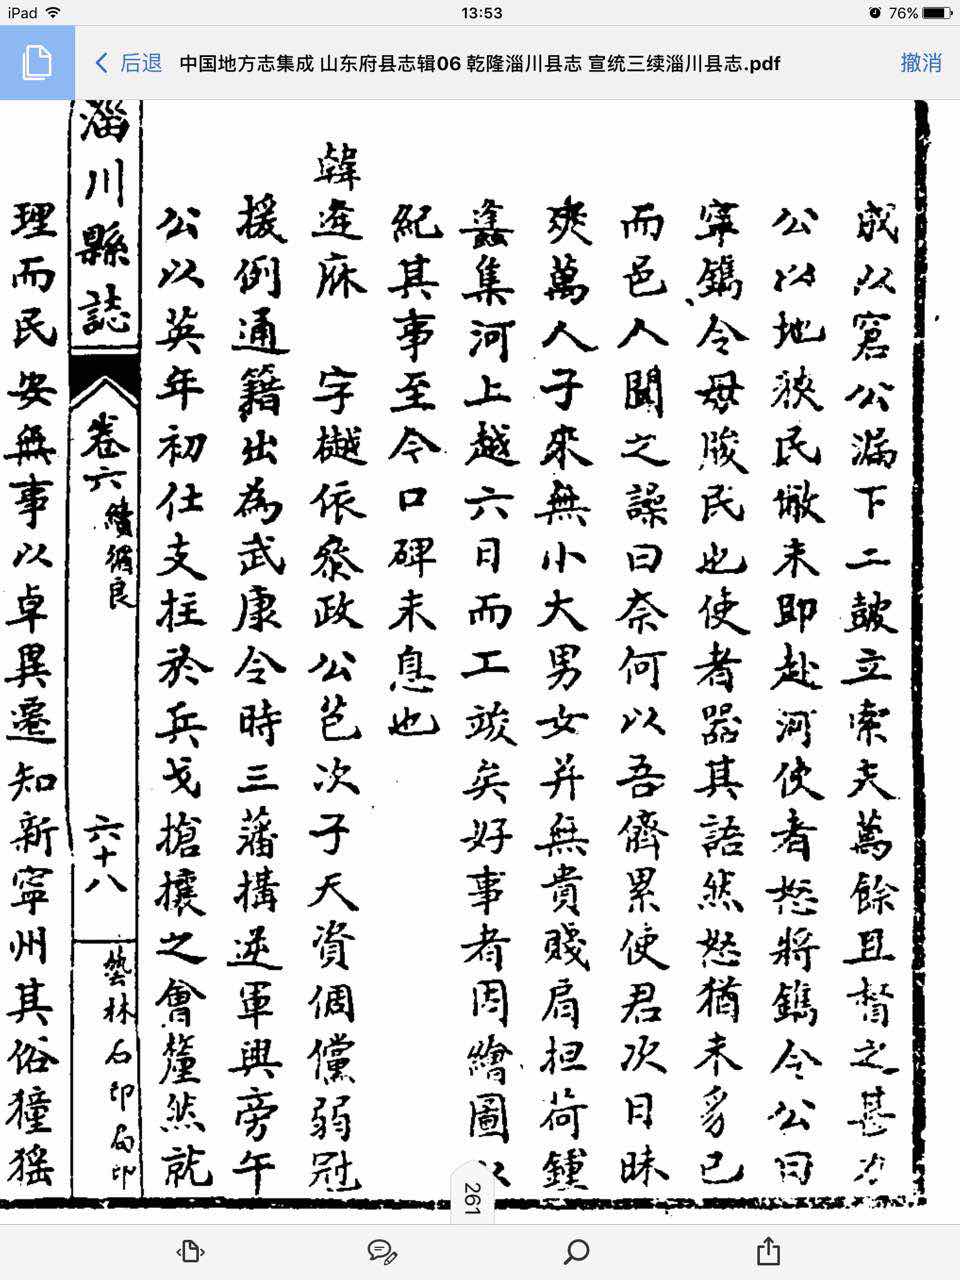 iPad
13:53
76%
后退
中国地方志集成 山东府县志辑06 乾隆淄川县志 宣统三续淄川县志.pdf
撤消
成以窘公漏下二鼓立索夫萬餘且督之甚力
公以地狹民墽未即赴河使者怒將鐫令公曰
寜鐫令毋朘民也使者器其語然怒猶未豸已
而邑人聞之譟曰奈何以吾儕累使君次日昧
爽萬人子來無小大男女并無貴賤肩担荷鍤
螽集河上越六日而工竣矣好事者因繪圖以
紀其事至今口碑未息也
韓遊庥 字樾依叅政公芑次子天資倜儻弱冠
援例通籍出為武康令時三藩搆逆軍興旁午
公以英年初仕支拄於兵戈搶攘之會釐然就
淄川縣誌
卷六
續循良
六十八
藝林石印局印
理而民安無事以卓異遷知新寜州其俗獞猺
261